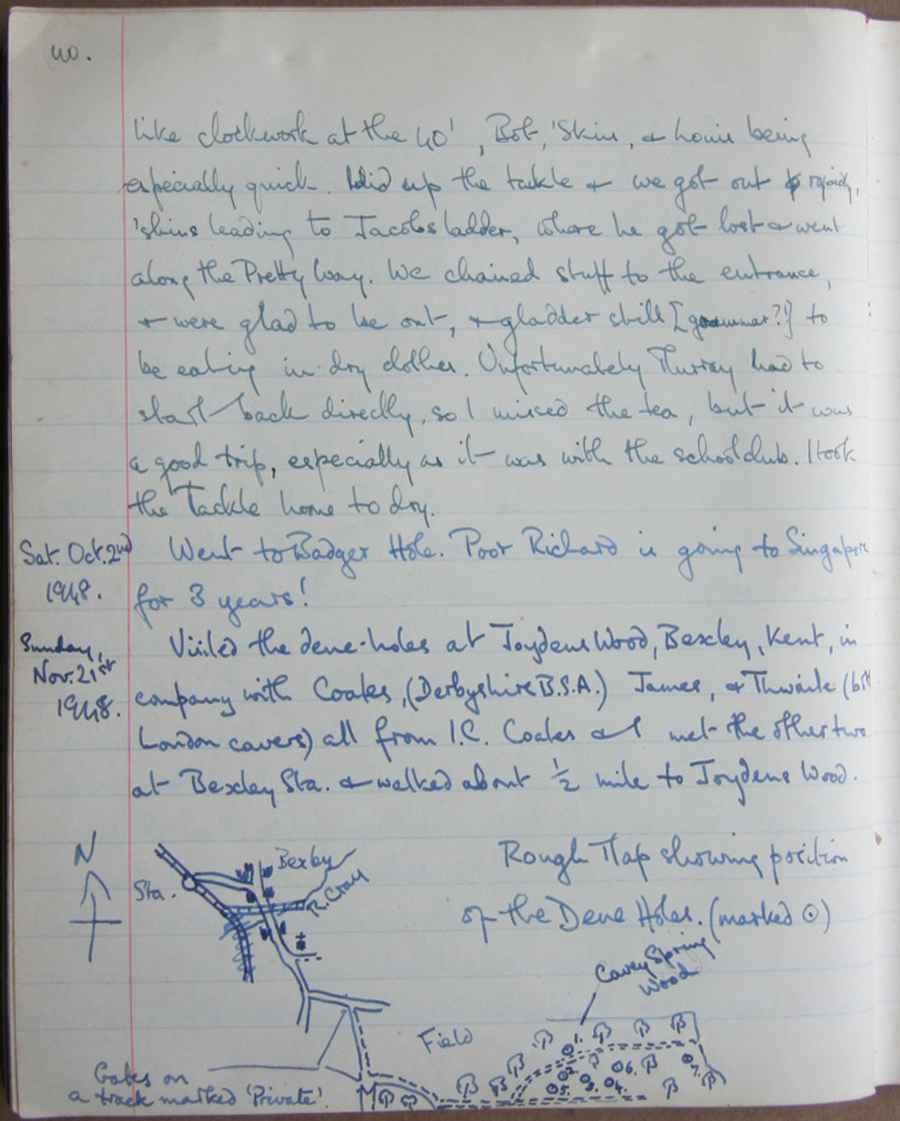 40.
like clockwork at the 40', Bob, 'Skins, & Louie being
especially quick. Did up the tackle & we got out rapidly,
'skins leading to Jacobs ladder, where he got lost & went
along the Pretty Way. We chained stuff to the entrance,
& were glad to be out, & gladder still [grammar?!] to
be eating in dry clothes. Unfortunately Murray had to
start back directly, so I missed the tea, but it was
a good trip, especially as it was with the school club. I took
the Tackle home to dry.
Sat. Oct. 2nd Went to Badger Hole. Poor Richard is going to Singapore
1948. for 3 years!
Sunday, Visited the dene-holes at Joydens Wood, Bexley, Kent, in
Nov. 21st company with Coates, (Derbyshire B.S.A.) James, & Thwaite (both
1948. London cavers) all from I.C. Coates & I met the other two
at Bexley Sta. & walked about ½ mile to Joydens Wood.
N
Sta.
Bexley
R. Cray
Rough Map showing position
of the Dene Holes. (marked ⊙)
Cavey Spring
Wood
Field
1.
2.
3.
4.
5.
6.
7.
Gates on
a track marked 'Private'.